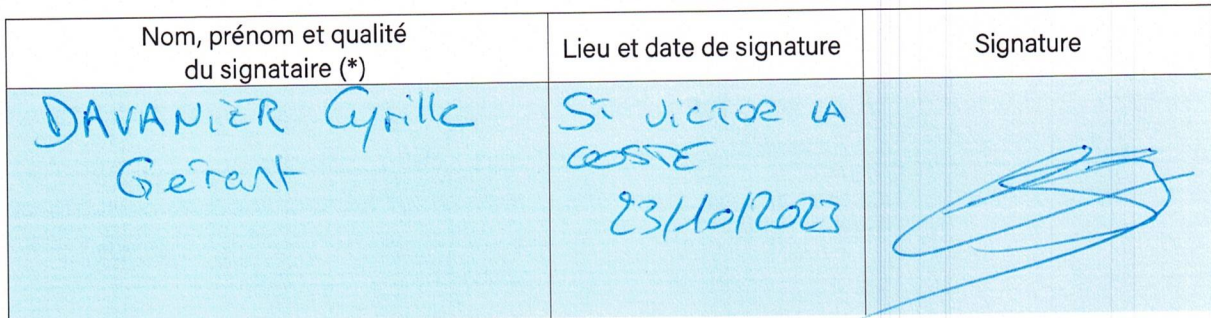 Nom, prénom et qualité
du signataire (*)
Lieu et date de signature
Signature
DAVANIER Cyrille
Gérant
St VICTOR LA
COSTE
23/10/2023